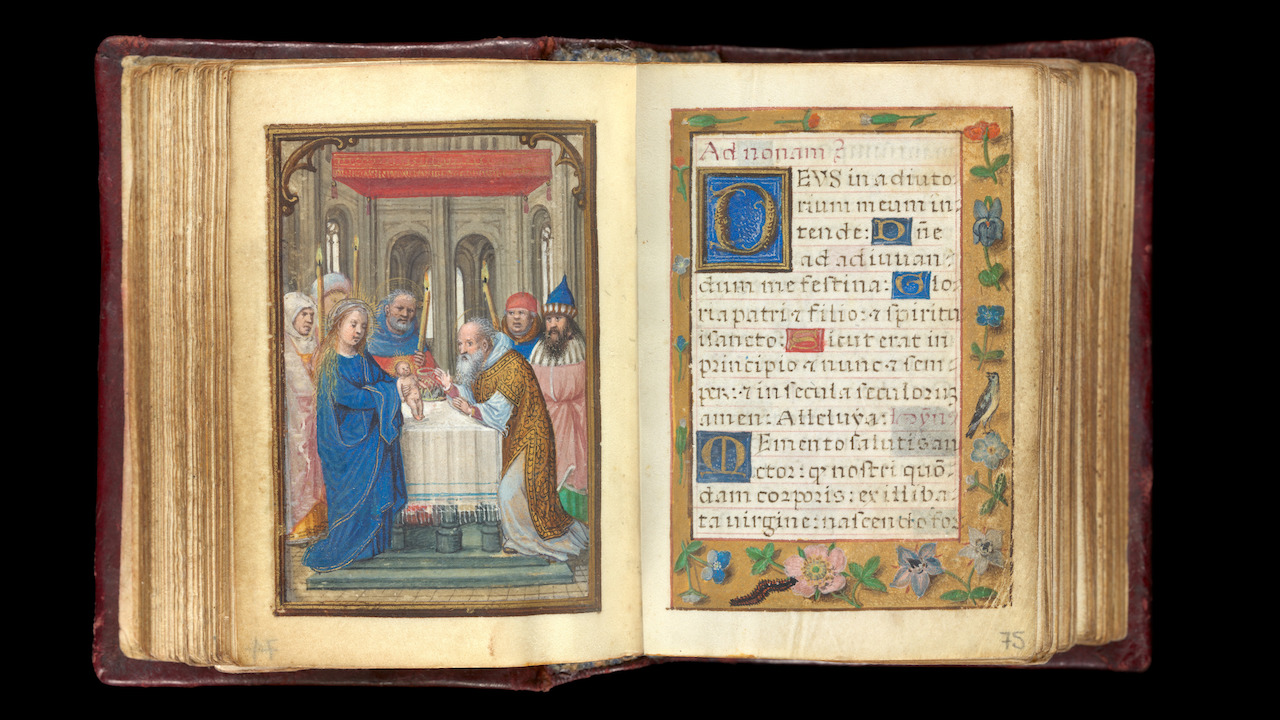 Ad nonam
DEVS in adiuto
rium meum in
tende: Dñe
ad adiuuan
dum me festina: Glo
ria patri ⁊ filio: ⁊ spiritu
i sancto: Sicut erat in
principio ⁊ nunc ⁊ sem
per: ⁊ in secula seculorum
amen: Alleluya: hymñ
Memento salutis au
ctor: qꝫ nostri quō
dam corporis: ex illiba
ta uirgine: nascendo for
75